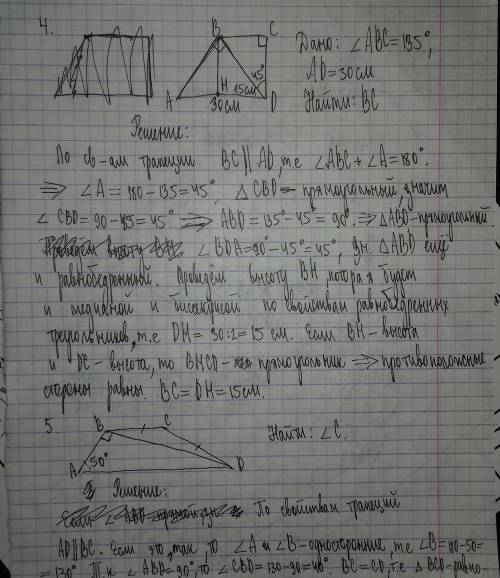 4.
B C
45°
A H 15см D
30см
Дано: ∠ABC=135°,
AD=30см
Найти: BC
Решение:
По св-ам трапеции BC∥AD, т.е ∠ABC+∠A=180°.
⟹ ∠A=180-135=45°. △CBD - прямоугольный, значит
∠CBD=90-45=45°. ⟹ ABD=135°-45°=90°. ⟹ △ABD-прямоугольный.
∠BDA=90°-45°=45°, зн. △ABD ещё
и равнобедренный. Проведём высоту BH, которая будет
и медианой и биссектрисой по свойствам равнобедренных
треугольников, т.е DH=30:2=15 см. Если BH-высота
и DC-высота, то BHCD- прямоугольник ⟹ противоположные
стороны равны. BC=DH=15см.
5.
B C
A 50° D
Найти: ∠C.
Решение:
По свойствам трапеций
AD∥BC. Если это так, то ∠A и ∠B-односторонние, т.е ∠B=180-50=
=130° Т.к ∠ABD=90°, то ∠CBD=130-90=40°. BC=CD, т.е △BCD-равно-